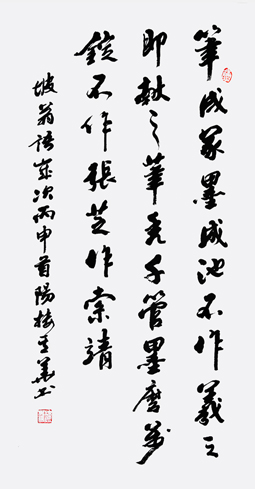 筆成冢墨成池不作羲之
即獻之筆禿千管墨磨萬
鋌不作張芝作索靖
坡翁語歲次丙申首陽